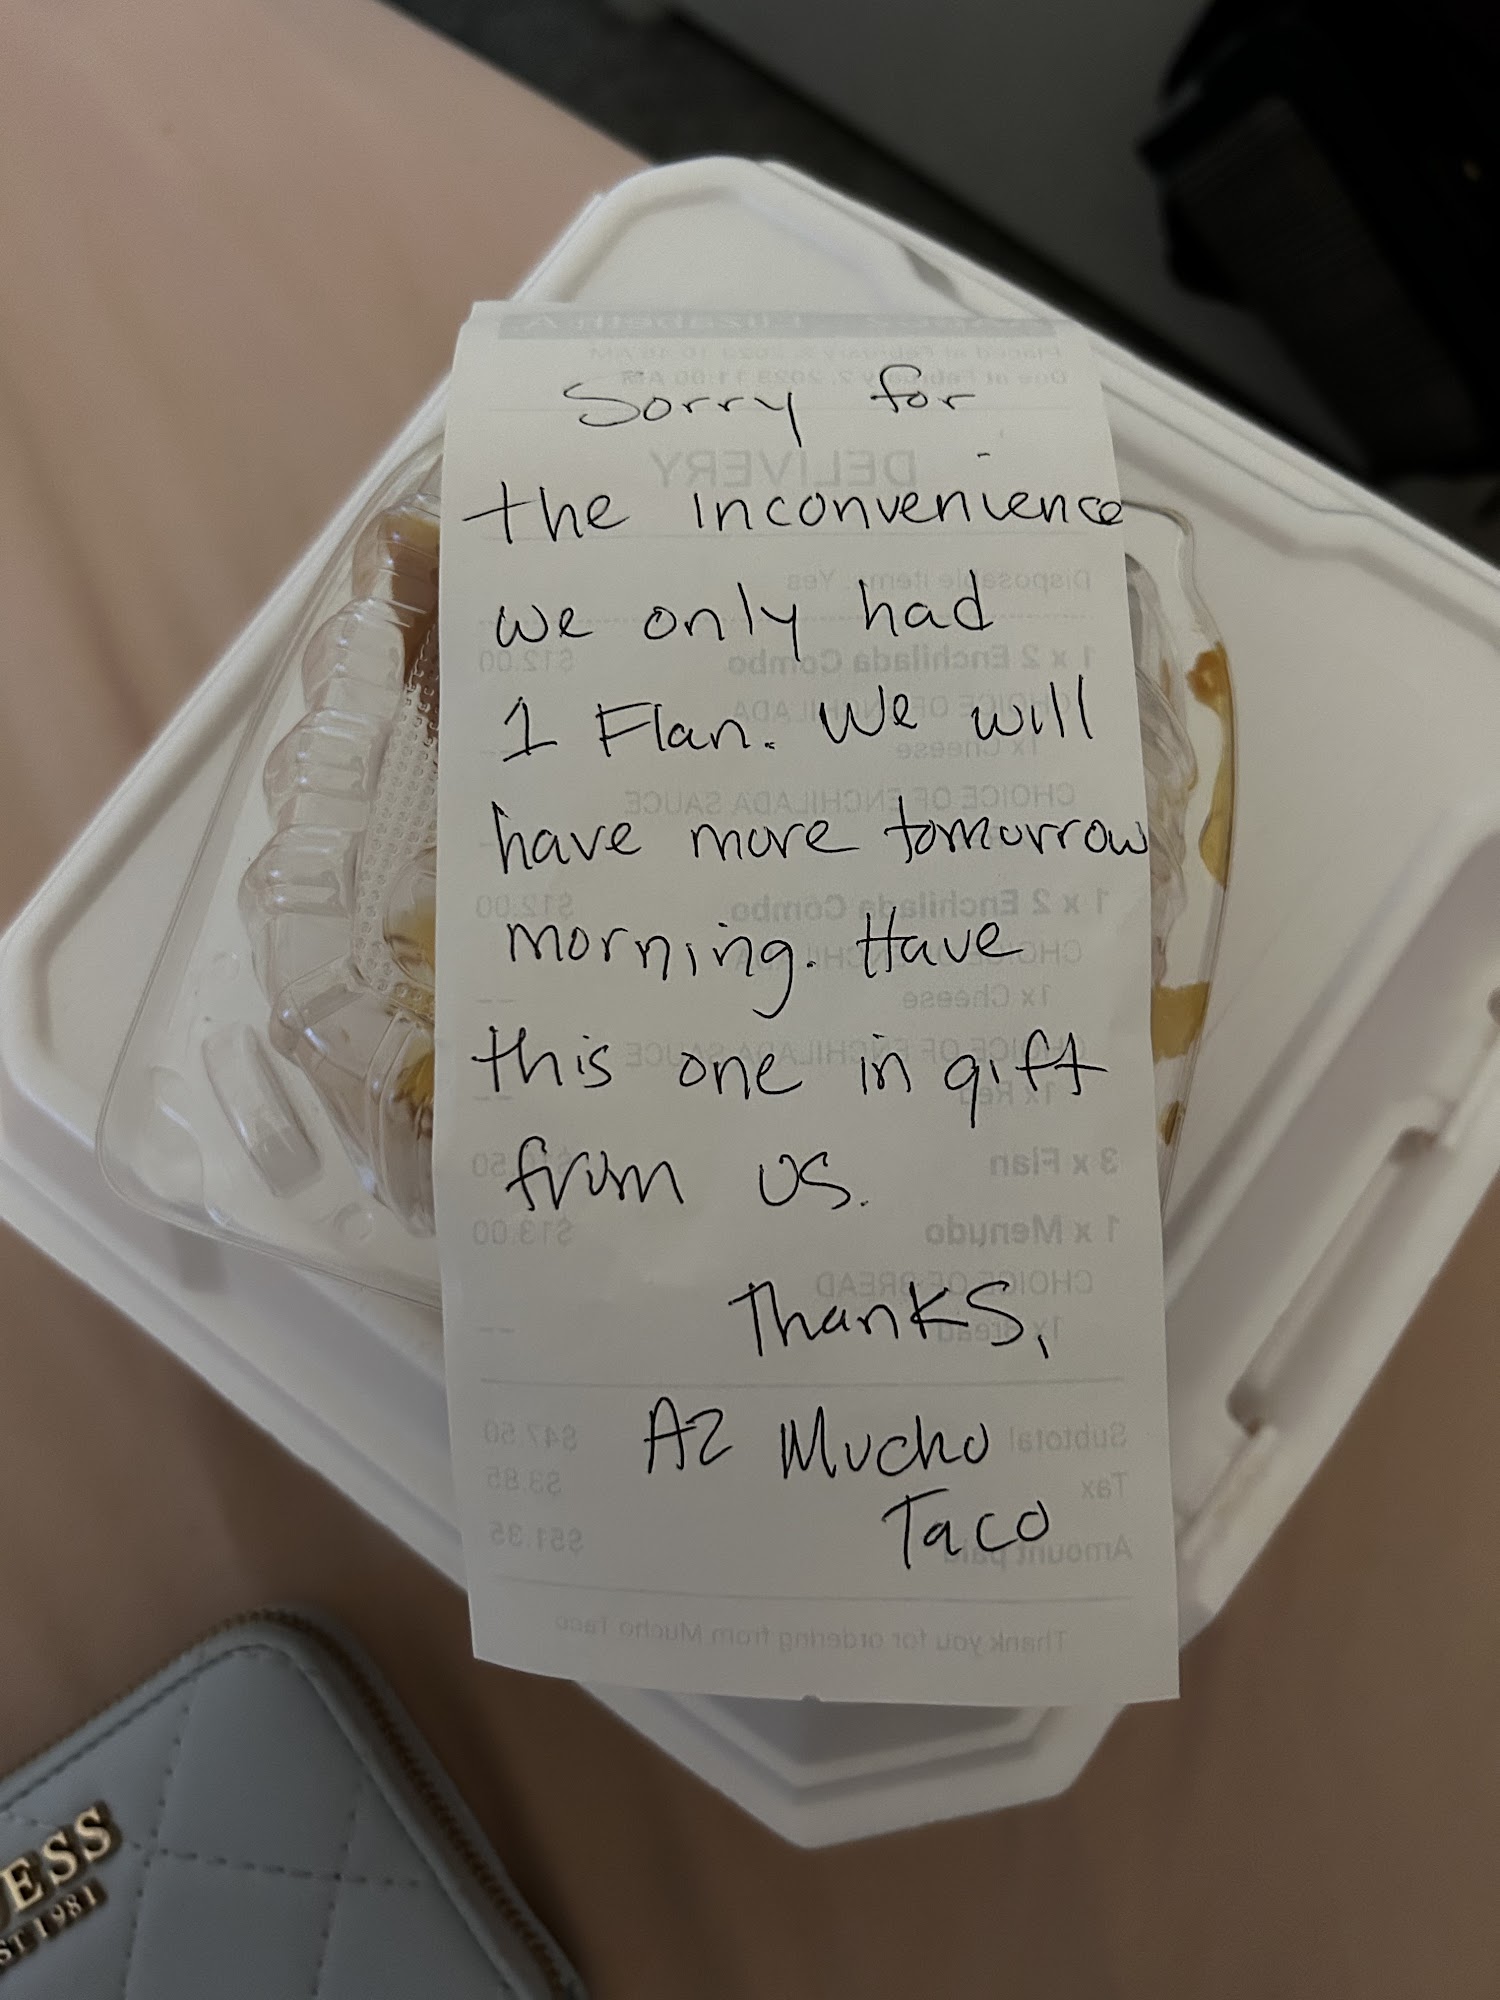 Sorry for
the inconvenience
we only had
1 Flan. We will
have more tomorrow
morning. Have
this one in gift
from us.
Thanks,
AZ Mucho
Taco
Elizabeth A
Placed at February 2, 2023
Due at February 2, 2023 11:00 AM
DELIVERY
Disposable items: Yes
1 x 2 Enchilada Combo $12.00
CHOICE OF ENCHILADA
1x Cheese
CHOICE OF ENCHILADA SAUCE
1 x 2 Enchilada Combo $12.00
CHOICE OF ENCHILADA
1x Cheese --
CHOICE OF ENCHILADA SAUCE
1x Red --
3 x Flan
1 x Menudo $13.00
CHOICE OF BREAD
1x Bread --
Subtotal $47.50
Tax $3.85
Amount paid $51.35
Thank you for ordering from Mucho Taco
ESS
ST 1981